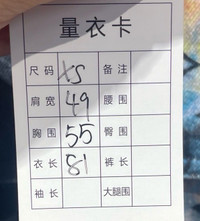 量衣卡
尺码 XS 备注
肩宽 49 腰围
胸围 55 臀围
衣长 81 裤长
袖长 大腿围